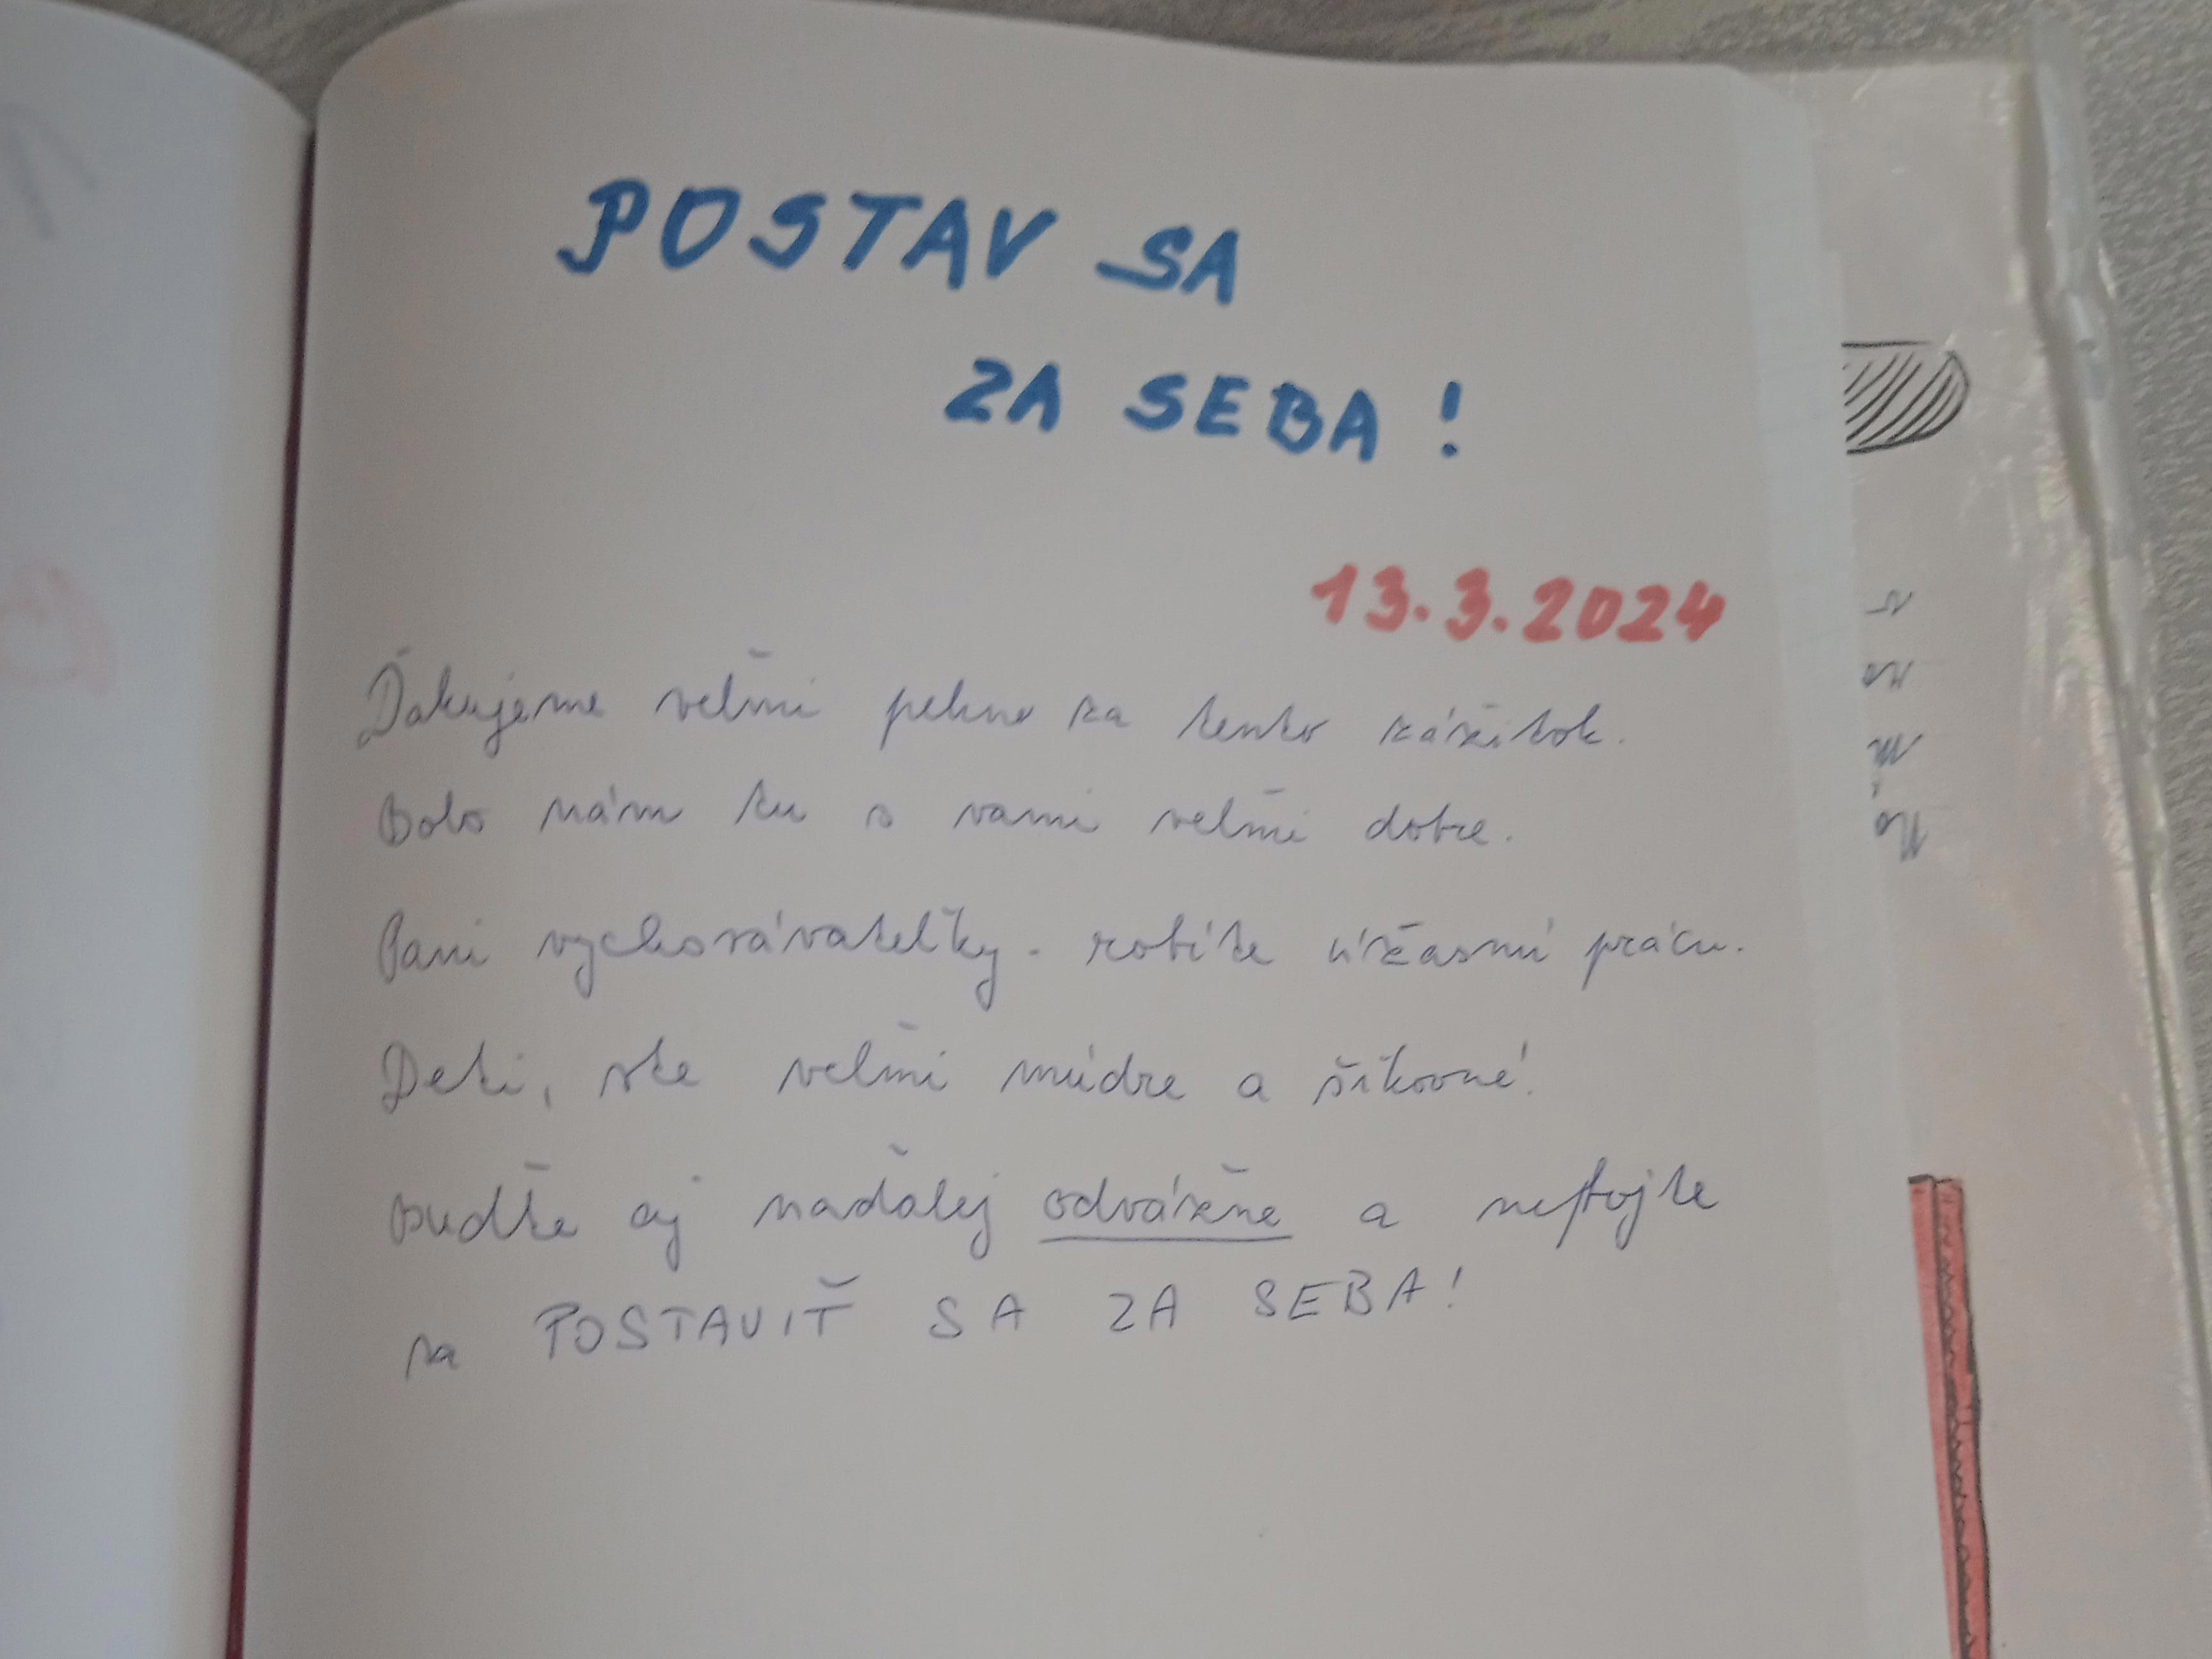 POSTAV SA
ZA SEBA!
13.3.2024
Ďakujeme veľmi pekne za tento zážitok.
Bolo nám tu s vami veľmi dobre.
Pani vychovávateľky - robíte úžasnú prácu.
Deti, ste veľmi múdre a šikovné!
Buďte aj naďalej odvážne a nestojte
sa POSTAVIŤ SA ZA SEBA!